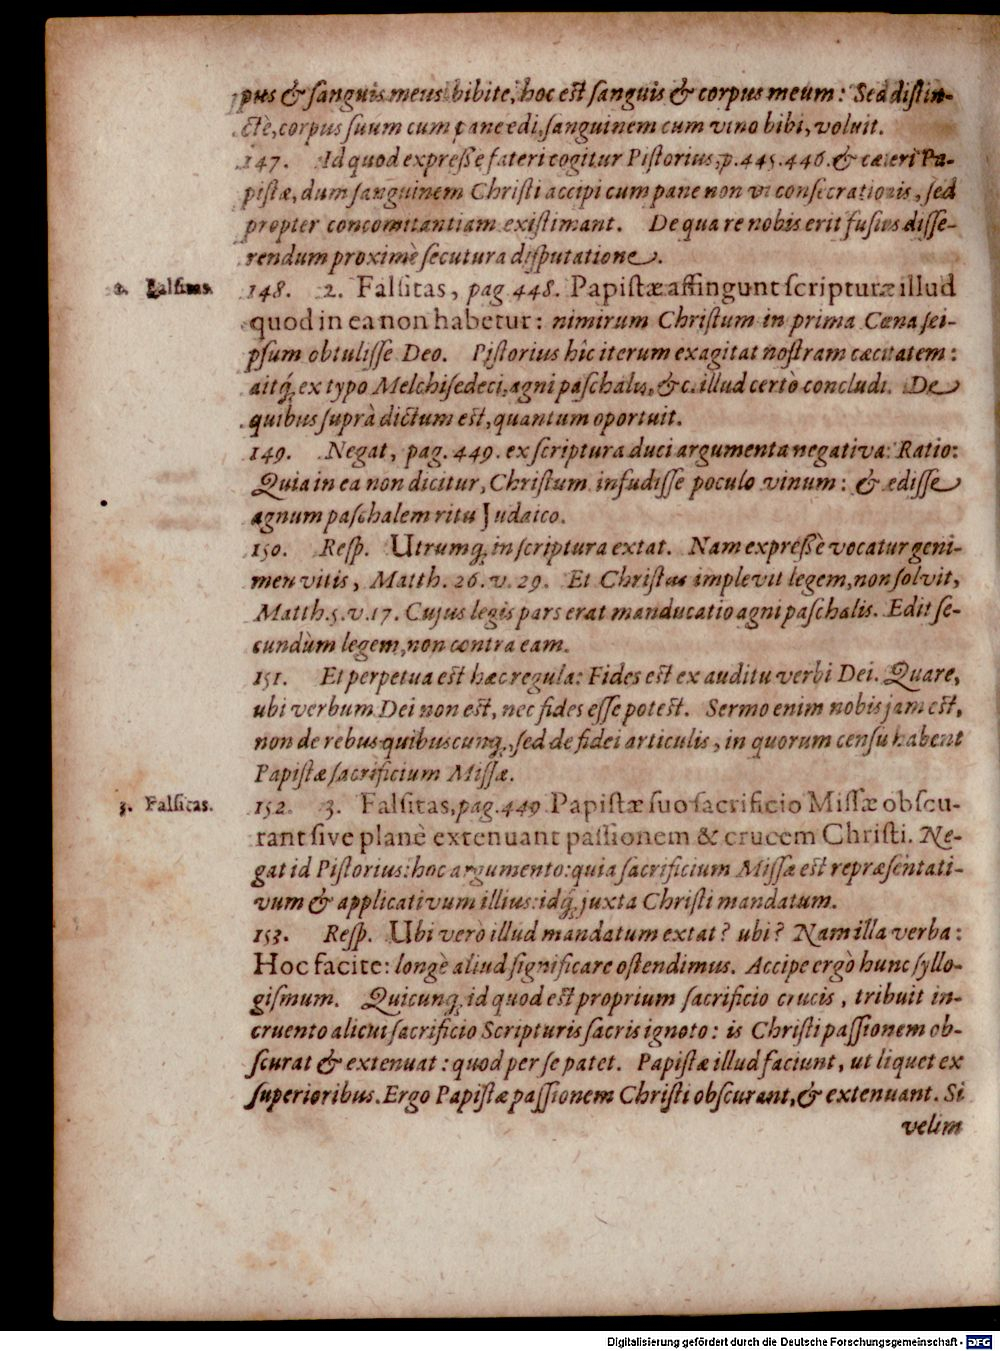 pus & sanguis meus: bibite, hoc est sanguis & corpus meum: Sed distin-
ctè, corpus suum cum pane edi, sanguinem cum vino bibi, voluit.
147. Id quod expresse fateri cogitur Pistorius, p. 445. 446. & cæteri Pa-
pistæ, dum sanguinem Christi accipi cum pane non vi consecrationis, sed
propter concomitantiam existimant. De qua re nobis erit fusius disse-
rendum proximè secutura disputatione.
2. Falsitas.
148. 2. Falsitas, pag 448. Papistæ affingunt scripturæ illud
quod in ea non habetur: nimirum Christum in prima Cœna sei-
psum obtulisse Deo. Pistorius hîc iterum exagitat nostram cæcitatem:
aitq́; ex typo Melchisedeci, agni paschalis, &c. illud certò concludi. De
quibus suprà dictum est, quantum oportuit.
149. Negat, pag. 449. ex scriptura duci argumenta negativa: Ratio:
Quia in ea non dicitur, Christum infudisse poculo vinum: & edisse
agnum paschalem ritu Judaico.
150. Resp. Utrumq; in scriptura extat. Nam expressè vocatur geni-
men vitis, Matth. 26. v. 29. Et Christus implevit legem, non solvit,
Matth. 5. v. 17. Cujus legis pars erat manducatio agni paschalis. Edit se-
cundùm legem, non contra eam.
151. Et perpetua est hæc regula: Fides est ex auditu verbi Dei. Quare,
ubi verbum Dei non est, nec fides esse potest. Sermo enim nobis jam est,
non de rebus quibuscunq;, sed de fidei articulis, in quorum censu habent
Papistæ sacrificium Missæ.
3. Falsitas.
152. 3. Falsitas, pag. 449 Papistæ suo sacrificio Missæ obscu-
rant sive planè extenuant passionem & crucem Christi. Ne-
gat id Pistorius: hoc argumento: quia sacrificium Missæ est repræsentati-
vum & applicativum illius: idq́; juxta Christi mandatum.
153. Resp. Ubi verò illud mandatum extat? ubi? Nam illa verba:
Hoc facite: longè aliud significare ostendimus. Accipe ergò hunc syllo-
gismum. Quicunq; id quod est proprium sacrificio crucis, tribuit in-
cruento alicui sacrificio Scripturis sacris ignoto: is Christi passionem ob-
scurat & extenuat: quod per se patet. Papistæ illud faciunt, ut liquet ex
superioribus. Ergo Papistæ passionem Christi obscurant, & extenuant. Si
velim
Digitalisierung gefördert durch die Deutsche Forschungsgemeinschaft - DFG